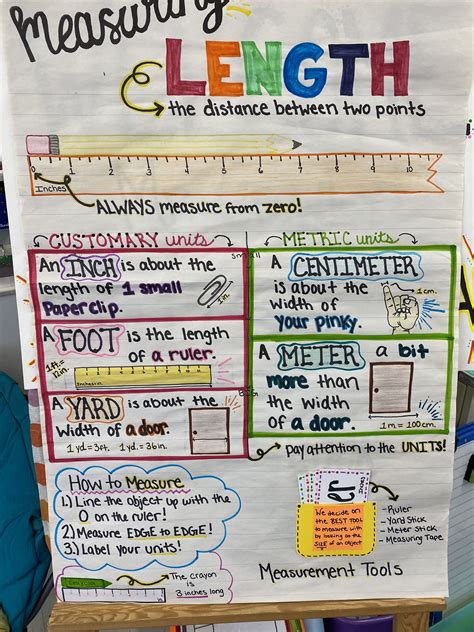 Measuring
LENGTH
the distance between two points
0 1 2 3 4 5 6 7 8 9 10
Inches
ALWAYS measure from zero!
CUSTOMARY units
Small
METRIC units
An INCH is about the
length of 1 small
Paperclip.
1 in.
A CENTIMETER
is about the
width of
your pinky.
1 cm.
A FOOT is the length
of a ruler.
1 ft. =
12 in.
A METER a bit
more than
the width
of a door.
1 m = 100cm
BIG
A YARD is about the
width of a door.
1 yd = 3 ft. 1 yd. = 36 in.
pay attention to the UNITS!
How to Measure
1.) Line the object up with the
0 on the ruler!
2.) Measure EDGE to EDGE!
3.) Label your units!
The crayon
is
3 inches long
er
We decide on
the BEST TOOL
to measure with
by looking at the
SIZE of an object
- Ruler
- Yard Stick
- Meter Stick
- Measuring Tape
Measurement Tools